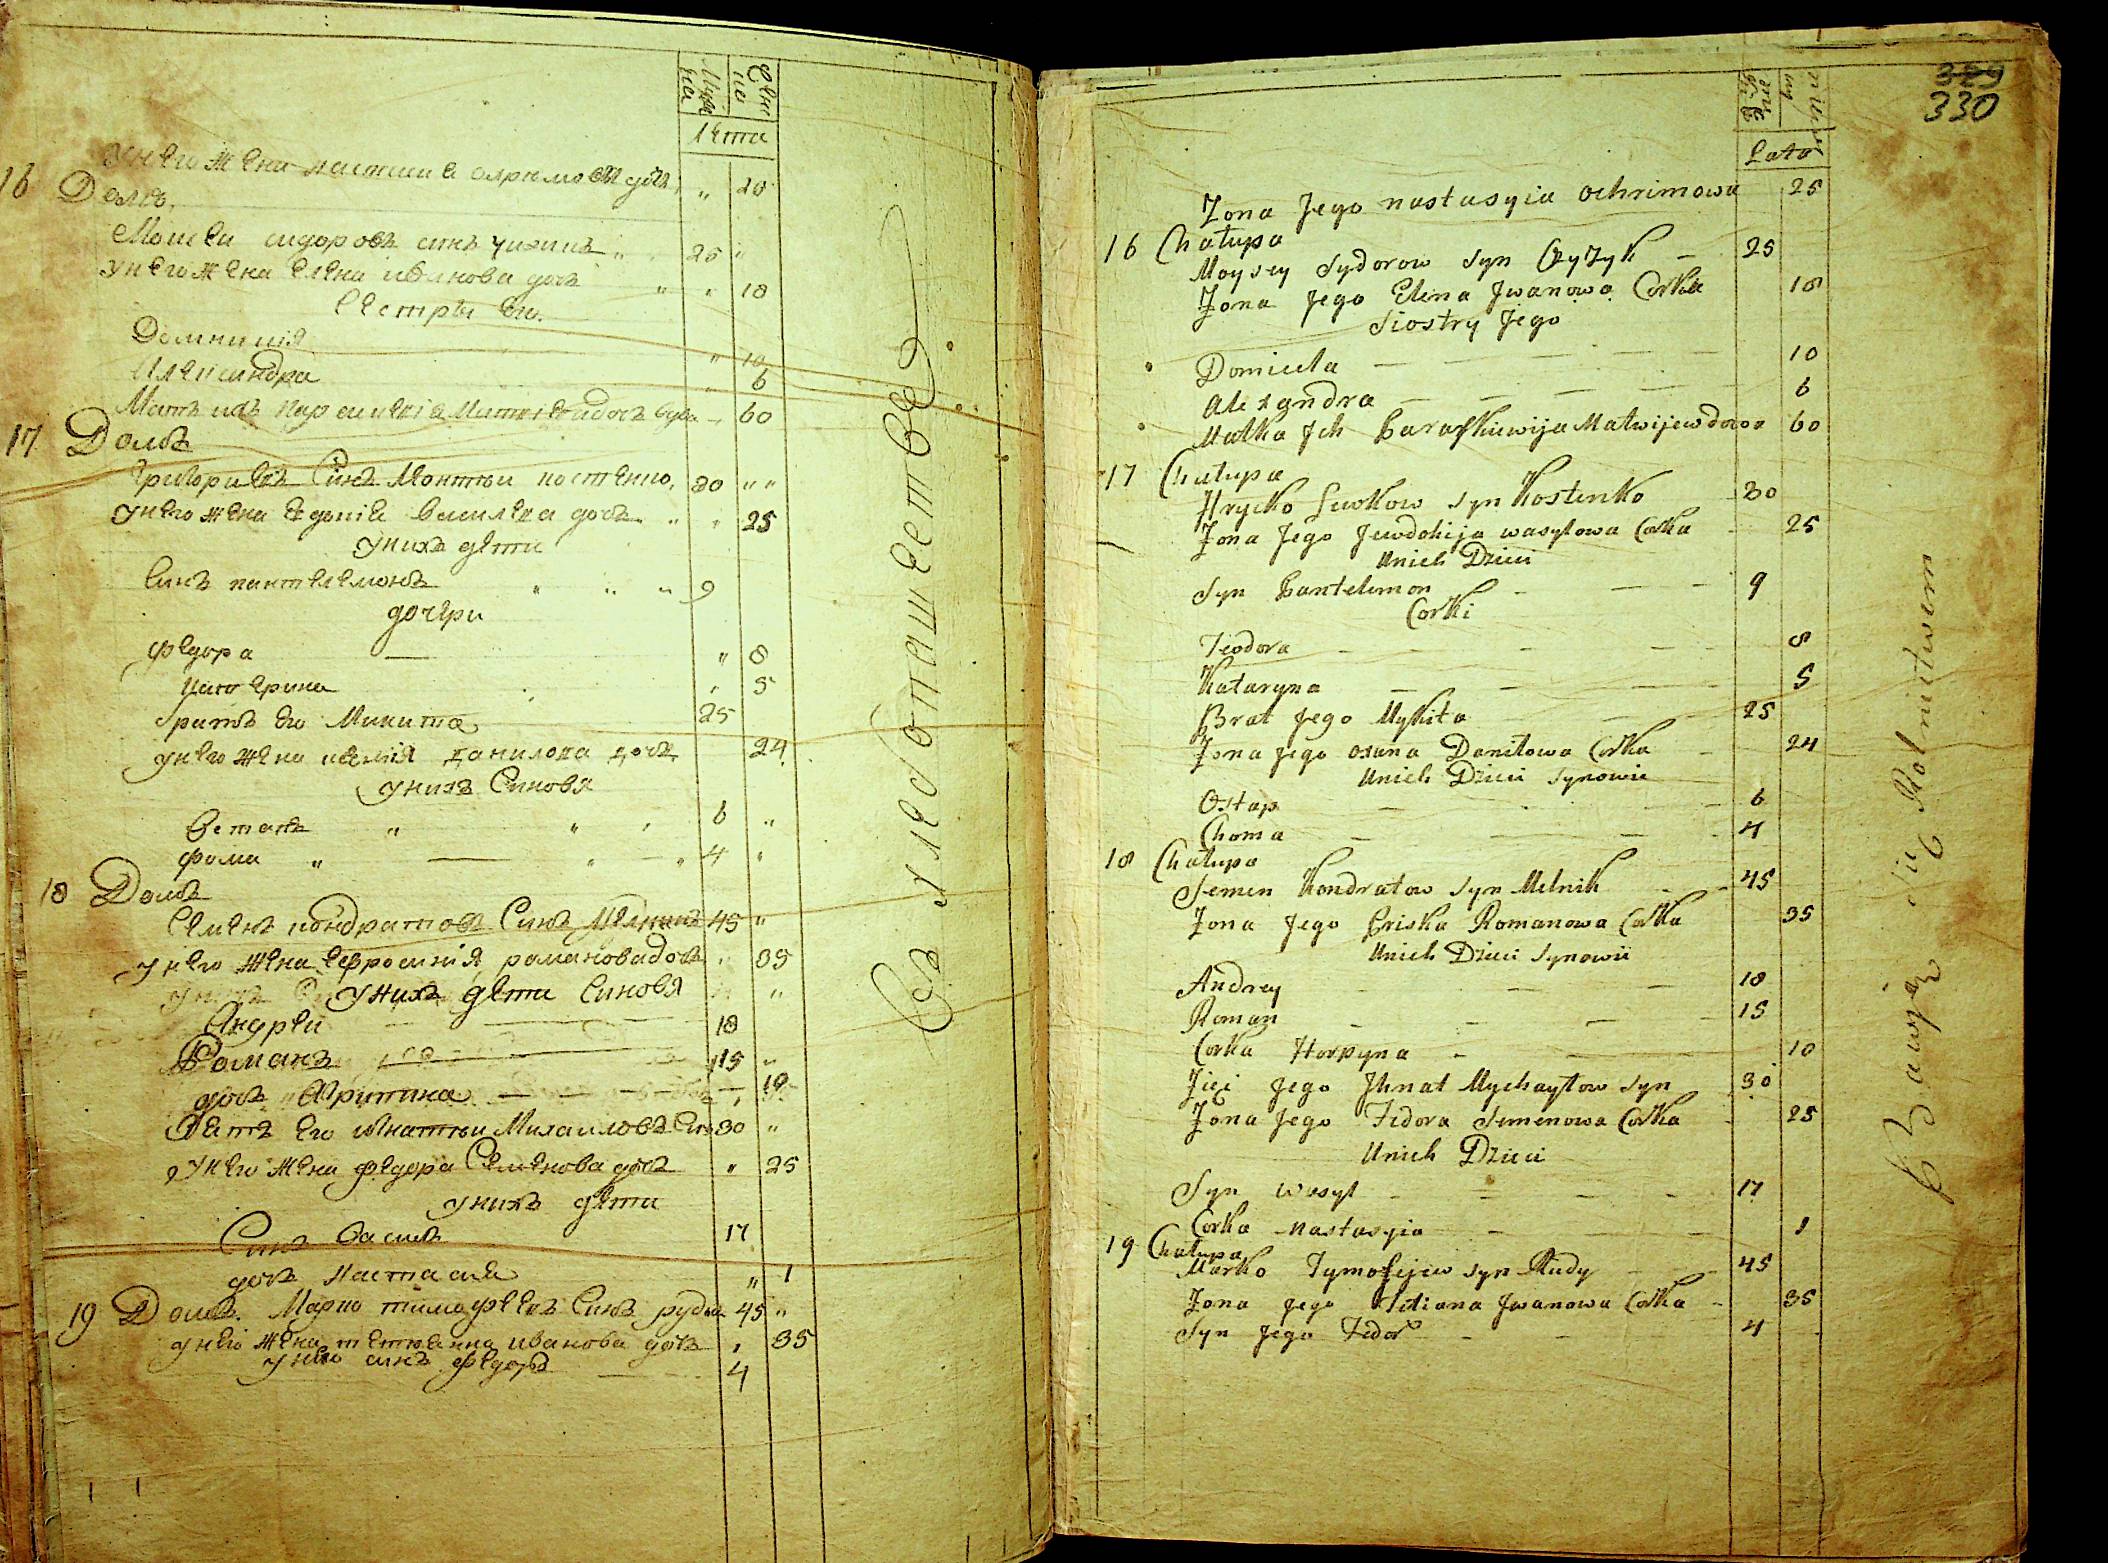 Мужеска Женска
лета
У него жена настасия охримова дочь " 25
16 Домъ
Моисей сидоровъ синъ чижикъ 25 "
у него жена елена иванова дочь " 18
Сестры его
Домникия " 10
Александра " 6
Мать ихъ Параскевія Матвіева дочь вдова 60
17 Домъ
Григорий Синъ Костенко 30 " "
у него жена Евдокія Василева дочь " 25
у нихъ дети
Синъ пантелемонъ " " " 9
дочери
федора — " 8
Катерина " 5
братъ его Микита 25
у него жена ксенія данилова дочь 24
у нихъ Синовя
Остапъ " " " 6 "
фома " — " 4 "
18 Домъ
Семенъ кондратовъ Синъ Мелникъ 45 "
у него жена евфросинія романова дочь " 35
у нихъ дети Синовя "
Андрей 18
Романъ 15 "
дочь Агрипина 10
Зять его игнатий Михаиловъ Синъ 30 "
у него жена федора Семенова дочь " 25
у нихъ дети
Синъ Василь 17
дочь настасия " 1
19 Домъ. Марко тимофеевъ Синъ рудый 45 "
у него жена тетяна иванова дочь " 35
у него синъ федоръ 4
329
330
Lata
Żona Jego nastasyia ochrimowa 25
16 Chałupa
Moysey Sydorow Syn Czyżyk — 25
Żona Jego Elena Jwanowa Corka 18
Siostry Jego
Domicela — 10
Alexandra — 6
Matka Jch Paraskiewija Matwijewa wdowa 60
17 Chałupa
Hrycko Lewkow Syn Kostenko 30
Żona Jego Jewdokija wasylowa Corka 25
Unich Dzieci
Syn Pantelemon — 9
Corki
Teodora — 8
Kataryna — 5
Brat Jego Mykita 25
Żona Jego oxana Daniłowa Corka 24
Unich Dzieci Synowie
Ostap — 6
Choma — 4
18 Chałupa
Semen Kondratow Syn Melnik 45
Żona Jego Priska Romanowa Corka 35
Unich Dzieci Synowie
Andrey — 18
Roman — 15
Corka Horpyna — 10
Zięć Jego Jhnat Mychayłow Syn 30
Żona Jego Fedora Semenowa Corka 25
Unich Dzieci
Syn wasyl — 17
Corka nastasyia — 1
19 Chałupa
Marko Tymofijew Syn Rudy 45
Żona Jego Tetiana Jwanowa Corka 35
Syn Jego Fedor — 4